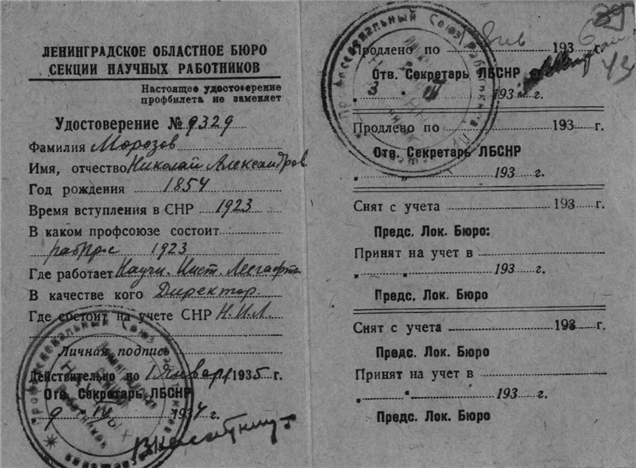 ЛЕНИНГРАДСКОЕ ОБЛАСТНОЕ БЮРО
СЕКЦИИ НАУЧНЫХ РАБОТНИКОВ
Настоящее удостоверение
профбилета не заменяет
Удостоверение № 9329
Фамилия Морозов
Имя, отчество Николай Александров
Год рождения 1854
Время вступления в СНР 1923
В каком профсоюзе состоит
рабпрос 1923
Где работает Научн. Инст. Лесгафта
В качестве кого Директор
Где состоит на учете СНР Н.И.Л.
Личная подпись
Действительно по 1 Января 1935 г.
Отв. Секретарь ЛБСНР
9 IV 1934 г.
Продлено по 193 г.
Отв. Секретарь ЛБСНР
3 193 г.
Продлено по 193 г.
Отв. Секретарь ЛБСНР
" " 193 г.
Снят с учета 193 г.
Предс. Лок. Бюро:
Принят на учет в
" " 193 г.
Предс. Лок. Бюро
Снят с учета 193 г.
Предс. Лок. Бюро
Принят на учет в
" " 193 г.
Предс. Лок. Бюро